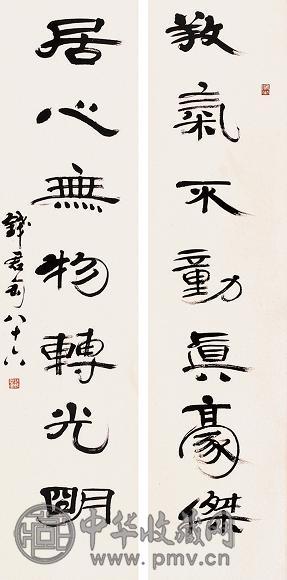 敛气不動真豪傑
居心無物轉光明
錢君匋八十六
中华收藏网
www.pmv.cn